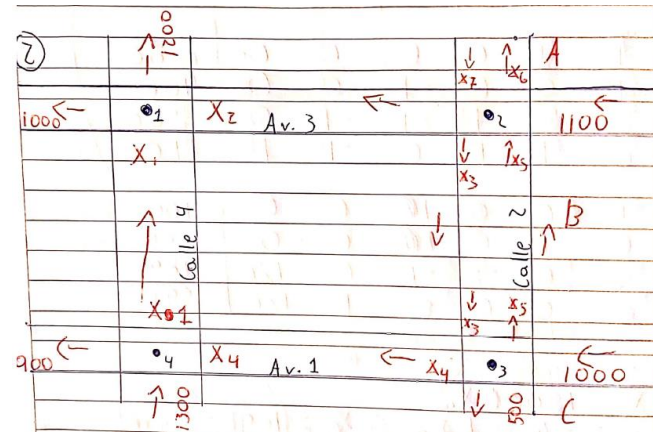 2
1200
A
x7
x6
1000
1
X2
Av. 3
2
1100
X1
x3
x5
Calle 4
Calle 2
B
X1
x3
x5
900
4
X4
Av. 1
X4
3
1000
1300
500
C